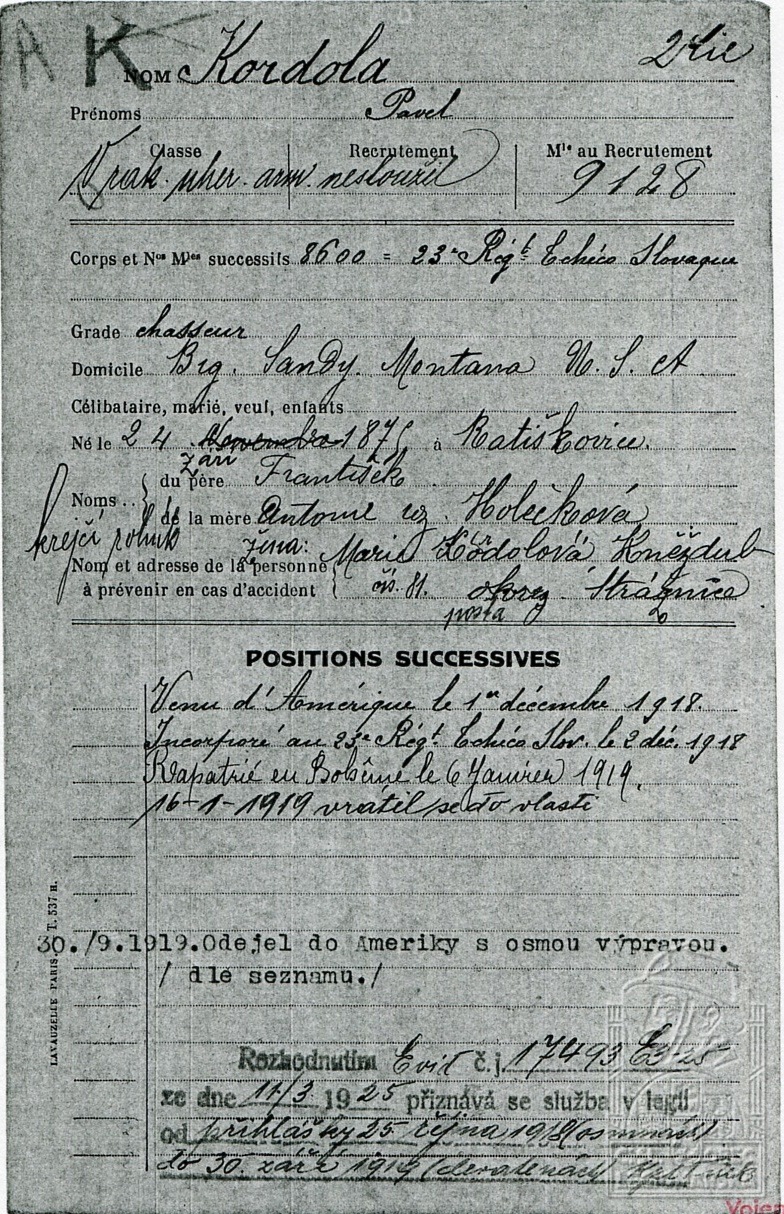 A K
NOM Kordola 2 Kie
Prénoms Pavel
Classe Recrutement Mle au Recrutement
V rak. uher. arm. nesloužil 9128
Corps et Nos Mles successifs 8600 = 23e Régt Tchéco Slovaque
Grade chasseur
Domicile Big. Sandy. Montana U. S. A
Célibataire, marié, veuf, enfants
Né le 24 září 1875 à Ratiškovice.
Noms du père František
de la mère Antonie roz. Holečková
krejčí rolník
žena: Marie Kordolová Kněždub
Nom et adresse de la personne
à prévenir en cas d'accident čís. 81. okres Strážnice
pošta
POSITIONS SUCCESSIVES
Venu d'Amérique le 1er décembre 1918.
Incorporé au 23e Régt Tchéco Slov. le 2 déc. 1918
Rapatrié en Bohême le 6 Janvier 1919.
16-1-1919 vrátil se do vlasti
30./9.1919.Odejel do Ameriky s osmou výpravou.
/ dle seznamu./
LAVAUZELLE PARIS T. 537 H.
Rozhodnutím Evid č.j. 17493
ze dne 11/3 1925 přiznává se služba v legii
od přihlášky 25 října 1918 (osmnáct)
do 30. září 1919 (devatenáct)
Vojen